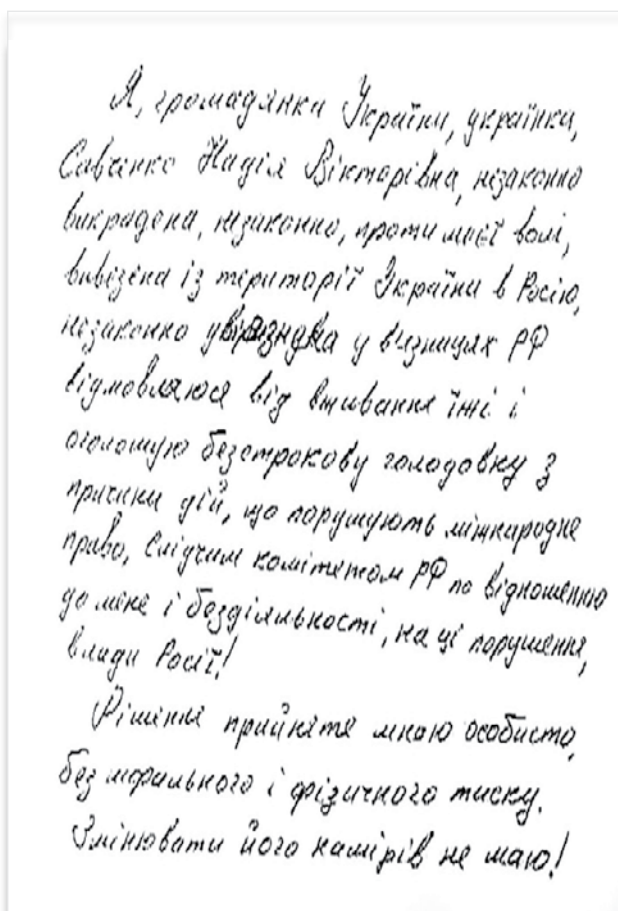 Я, громадянка України, українка,
Савченко Надія Вікторівна, незаконно
викрадена, незаконно, проти моєї волі,
вивезена із території України в Росію,
незаконно ув'язнена у в'язницях РФ
відмовляюся від вживання їжі і
оголошую безстрокову голодовку з
причини дій, що порушують міжнародне
право, Слідчим комітетом РФ по відношенню
до мене і бездіяльності, на ці порушення,
влади Росії!
Рішення прийняте мною особисто,
без морального і фізичного тиску.
Змінювати його намірів не маю!